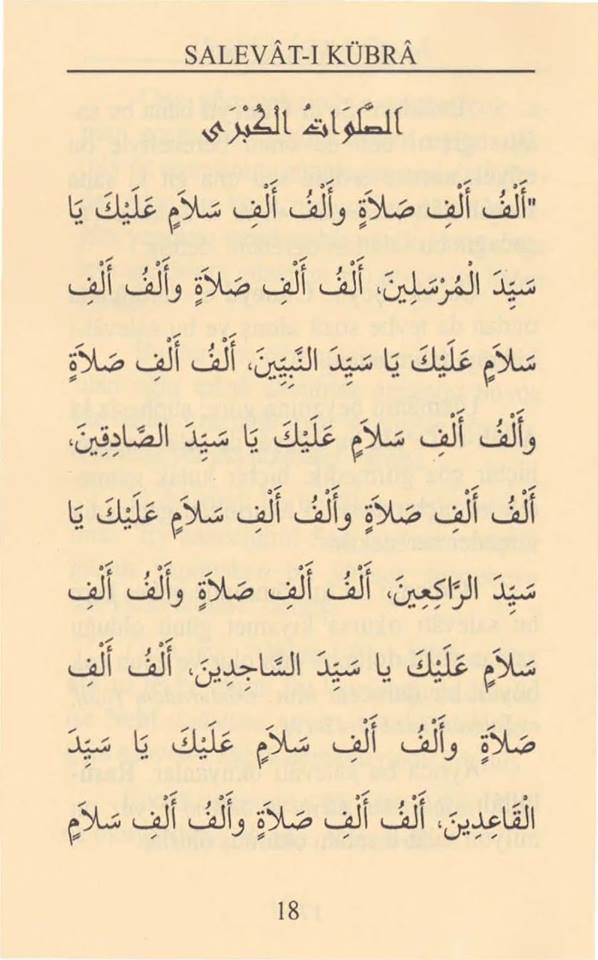 SALEVÂT-I KÜBRÂ
اَلصَّلَوَاتُ الْكُبْرَى
"أَلْفُ أَلْفِ صَلاَةٍ وأَلْفُ أَلْفِ سَلاَمٍ عَلَيْكَ يَا
سَيِّدَ الْمُرْسَلِينَ، أَلْفُ أَلْفِ صَلاَةٍ وأَلْفُ أَلْفِ
سَلاَمٍ عَلَيْكَ يَا سَيِّدَ النَّبِيِّينَ، أَلْفُ أَلْفِ صَلاَةٍ
وأَلْفُ أَلْفِ سَلاَمٍ عَلَيْكَ يَا سَيِّدَ الصَّادِقِينَ،
أَلْفُ أَلْفِ صَلاَةٍ وأَلْفُ أَلْفِ سَلاَمٍ عَلَيْكَ يَا
سَيِّدَ الرَّاكِعِينَ، أَلْفُ أَلْفِ صَلاَةٍ وأَلْفُ أَلْفِ
سَلاَمٍ عَلَيْكَ يا سَيِّدَ السَّاجِدِينَ، أَلْفُ أَلْفِ
صَلاَةٍ وأَلْفُ أَلْفِ سَلاَمٍ عَلَيْكَ يَا سَيِّدَ
الْقَاعِدِينَ، أَلْفُ أَلْفِ صَلاَةٍ وأَلْفُ أَلْفِ سَلاَمٍ
18